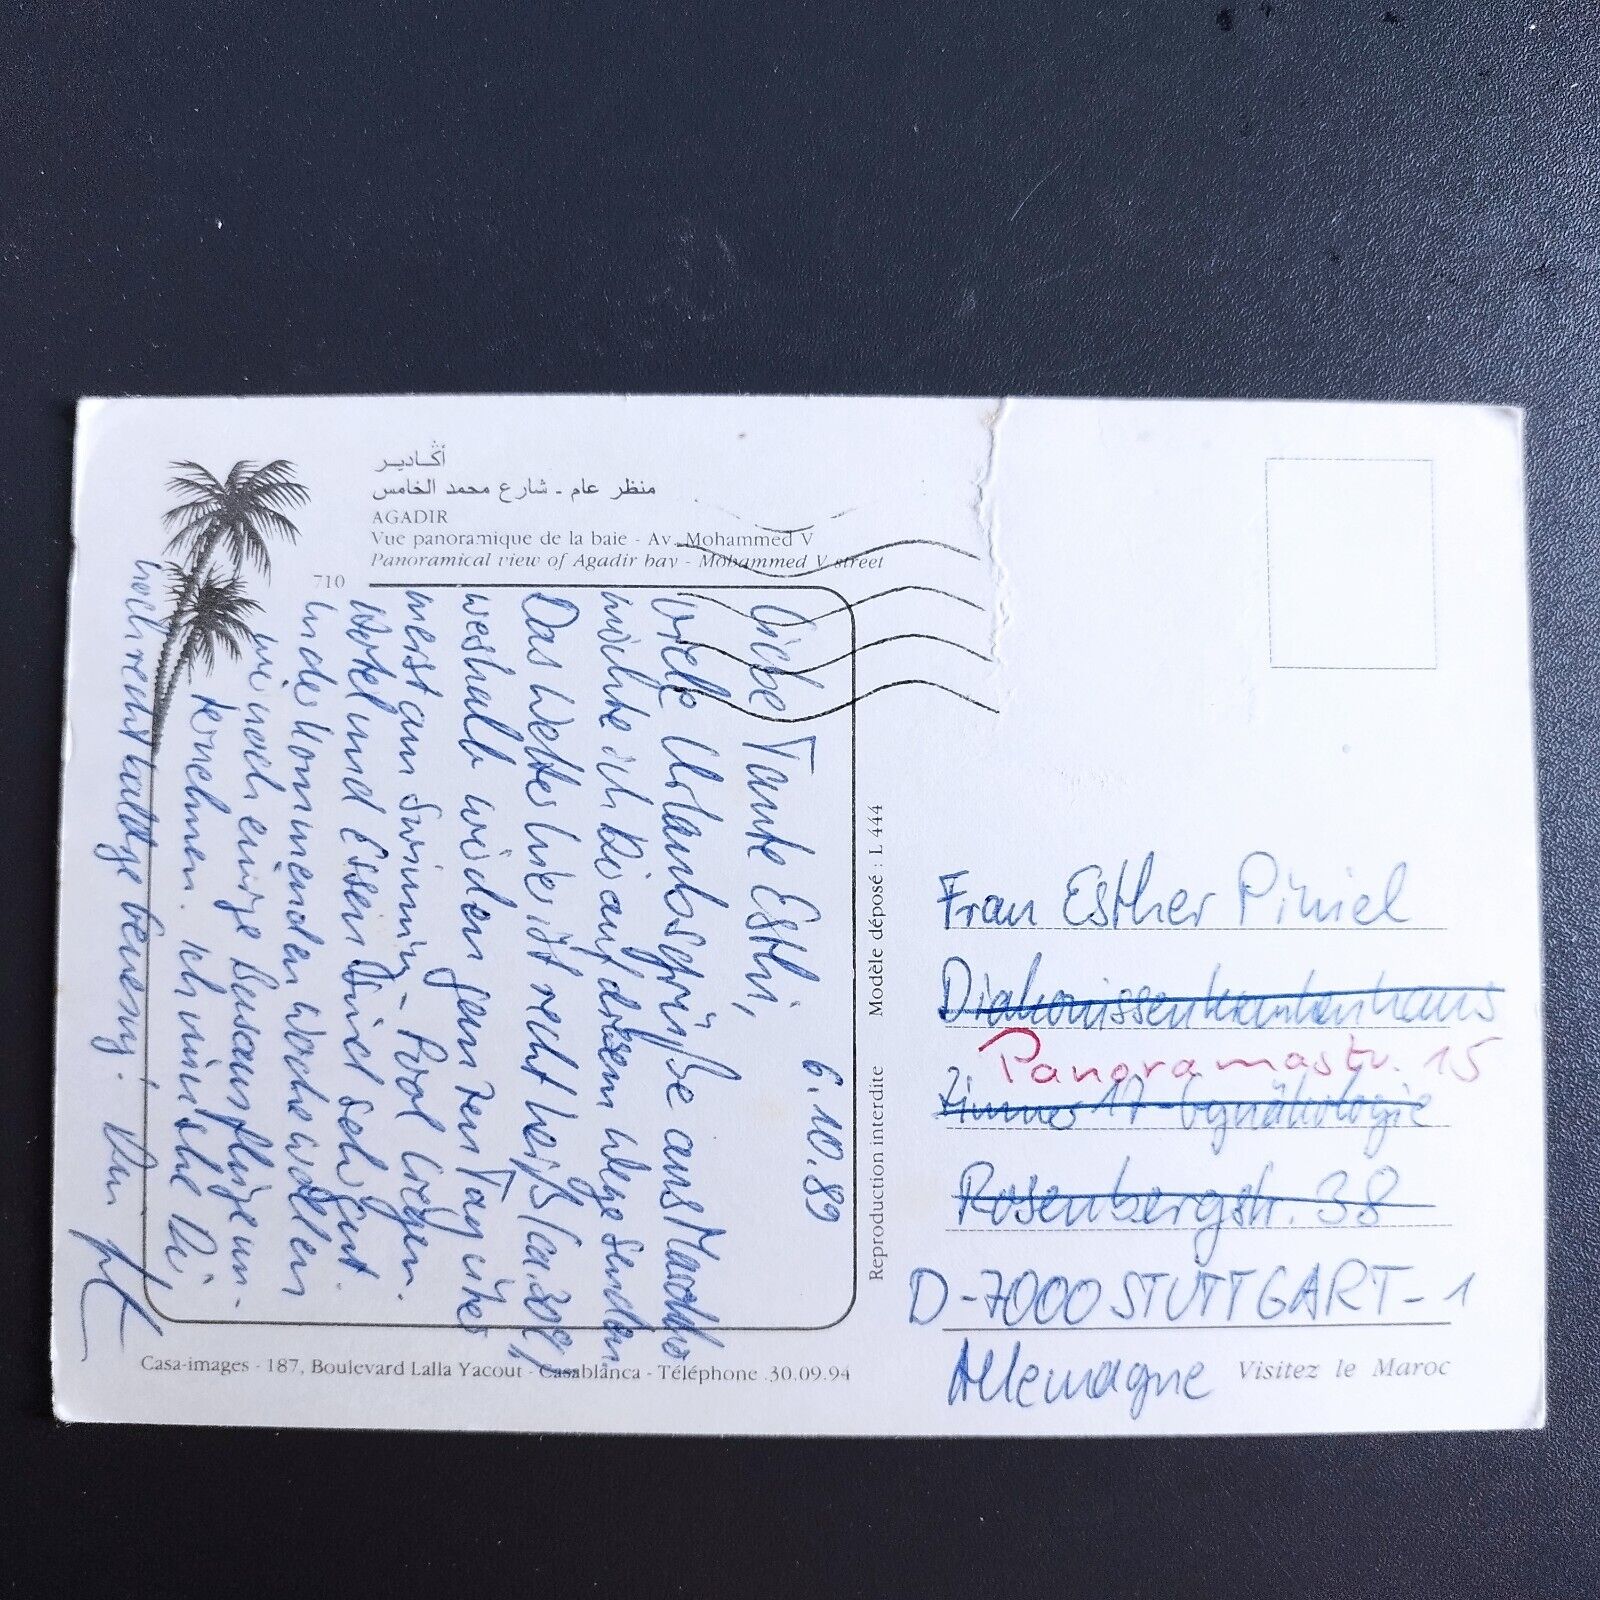 أگادير
منظر عام - شارع محمد الخامس
AGADIR
Vue panoramique de la baie - Av. Mohammed V
Panoramical view of Agadir bay - Mohammed V street
710
6.10.89
Liebe Tante Esthi,
viele Urlaubsgrüße aus Marokko
möchte ich Dir auf diesem Wege senden.
Das Wetter hier ist recht heiß (ca. 30°),
weshalb wir den ganzen Tag über
meist am Swimming-Pool liegen.
Hotel und Essen sind sehr gut.
In der kommenden Woche wollen
wir noch einige Busausflüge un-
ternehmen. Ich wünsche Dir,
noch recht baldige Genesung! Dein
Modèle déposé : L 444
Reproduction interdite
Casa-images - 187, Boulevard Lalla Yacout - Casablanca - Téléphone 30.09.94
Frau Esther Piniel
Diakonissenkrankenhaus
Panoramastr. 15
Zimmer 17 - Gynäkologie
Rosenbergstr. 38
D-7000 STUTTGART-1
Allemagne
Visitez le Maroc